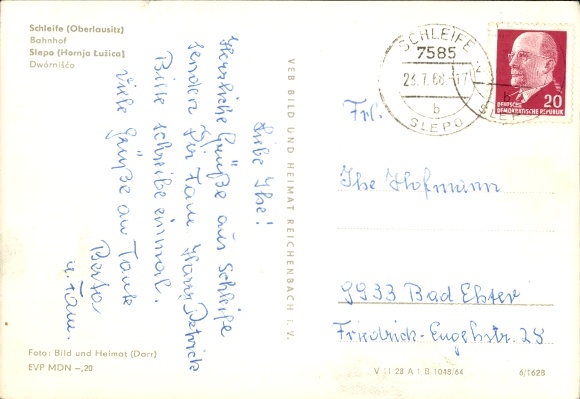 Schleife (Oberlausitz)
Bahnhof
Slepo (Hornja Łužica)
Dwórnišćo
Liebe Ilse!
Herzliche Grüße aus Schleife
senden Dir Fam. Harry
Bitte schreibe einmal.
Viele Grüße an Tante
Berta
u. Fam.
Foto: Bild und Heimat (Darr)
EVP MDN –,20
VEB BILD UND HEIMAT REICHENBACH i. V.
SCHLEIFE
7585
23.7.68.-17
b
SLEPO
DEUTSCHE
DEMOKRATISCHE REPUBLIK
20
Frl.
Ilse Hofmann
9933 Bad Elster
Friedrich-Engelsstr. 28
V 11 28 A 1 B 1048/64
6/1628